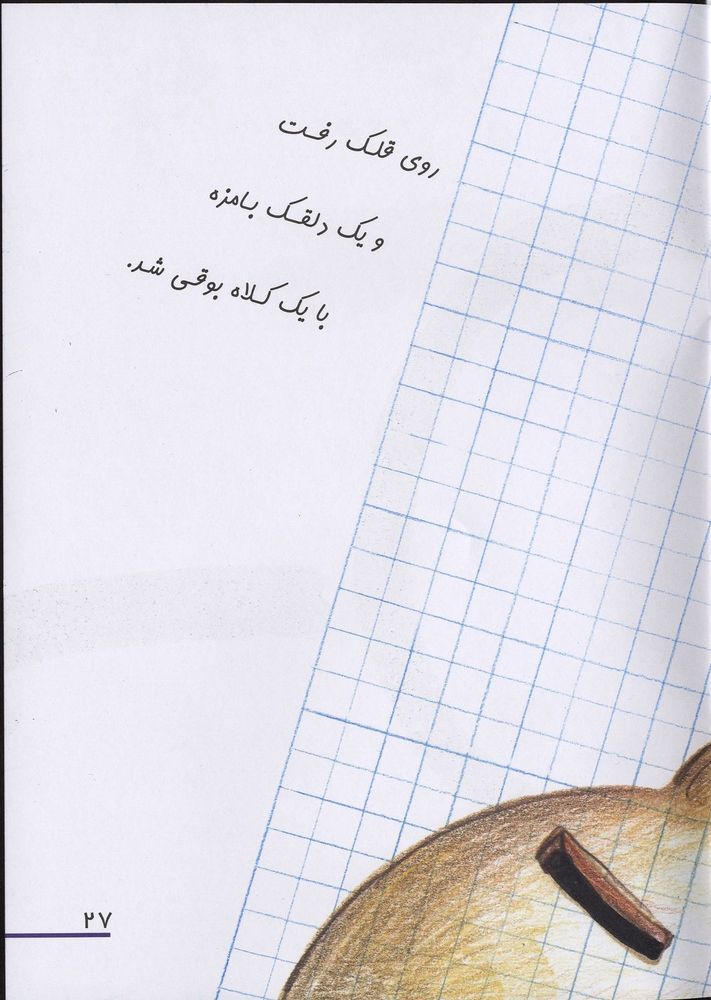 روی قلک رفت
و یک دلقک بامزه
با یک کلاه بوقی شد.
۲۷